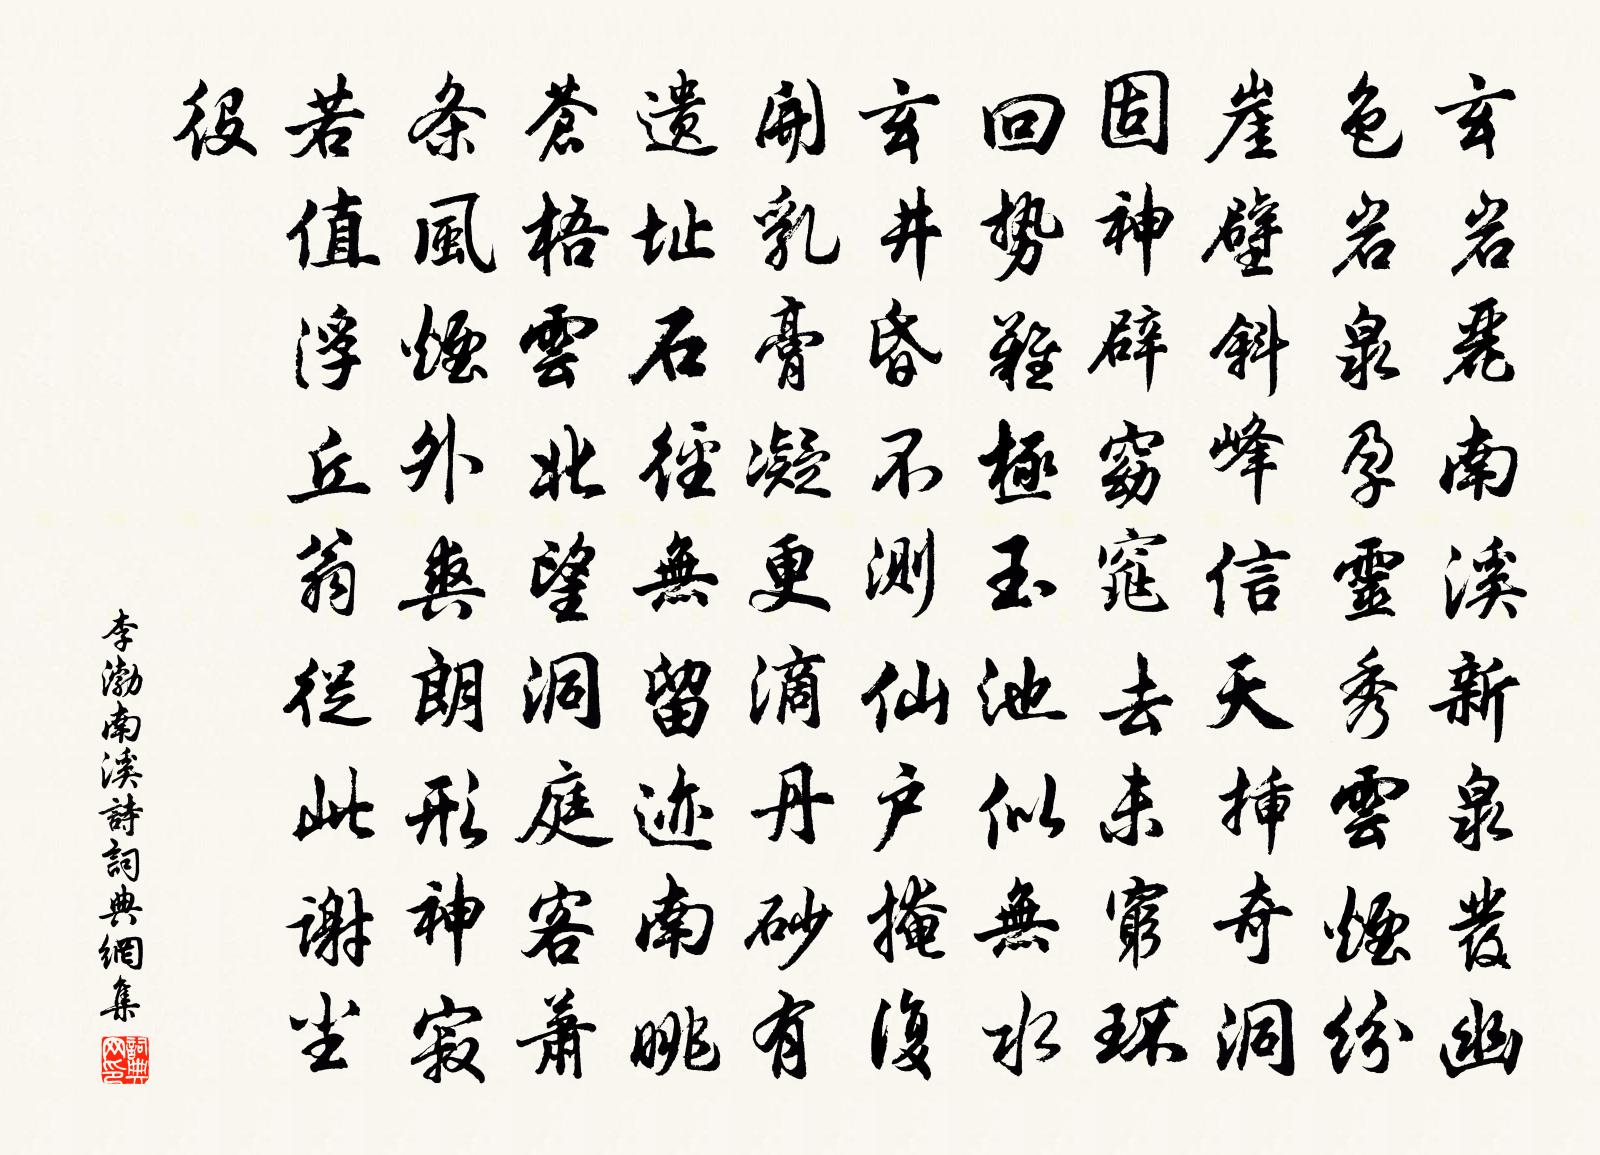 玄岩麗南溪新泉發幽
色岩泉孕靈秀雲煙紛
崖壁斜峰信天插奇洞
固神辟窈窕去未窮環
回势難極玉池似無水
玄井昏不測仙户掩復
開乳膏凝更滴丹砂有
遗址石徑無留迹南眺
蒼梧雲北望洞庭客蕭
条風煙外爽朗形神寂
若值浮丘翁從此謝尘
役
李渤南溪詩詞典網集
詞典网印